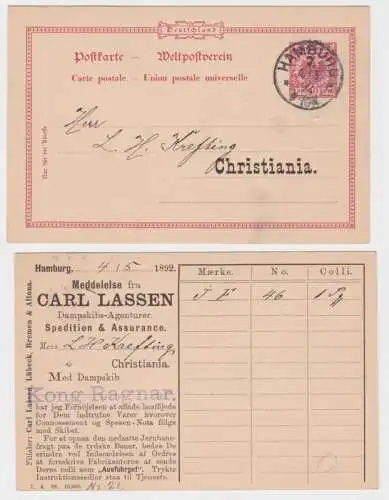 Deutschland
Postkarte — Weltpostverein
Carte postale — Union postale universelle
HAMBURG
Nur für die Adresse
Herr
L. H. Krefting
Christiania.
Hamburg, 4/5 1892.
Meddelelse fra
CARL LASSEN
Dampskibs-Agenturer.
Spedition & Assurance.
Herr L H Krefting
Christiania.
Med Dampskib
Kong Ragnar.
har jeg Fornöielsen at aflade hosföiede
for Dem indtrufne Varer hvorover
Connossement og Spesen-Nota fölger
med Skibet.
For at opnaa den nedsatte Jernbane-
fragt paa de tydske Baner, bedes De
erindre ved Indsendelsen af Ordres
at foreskrive Fabrikanterne at sende
deres Gods mærket „Ausfuhrgut“. Trykte
Instruktionssedler staar til Tjeneste.
Filialer: Carl Lassen, Lübeck, Bremen & Altona.
Mærke. No. Colli.
J F 46 1